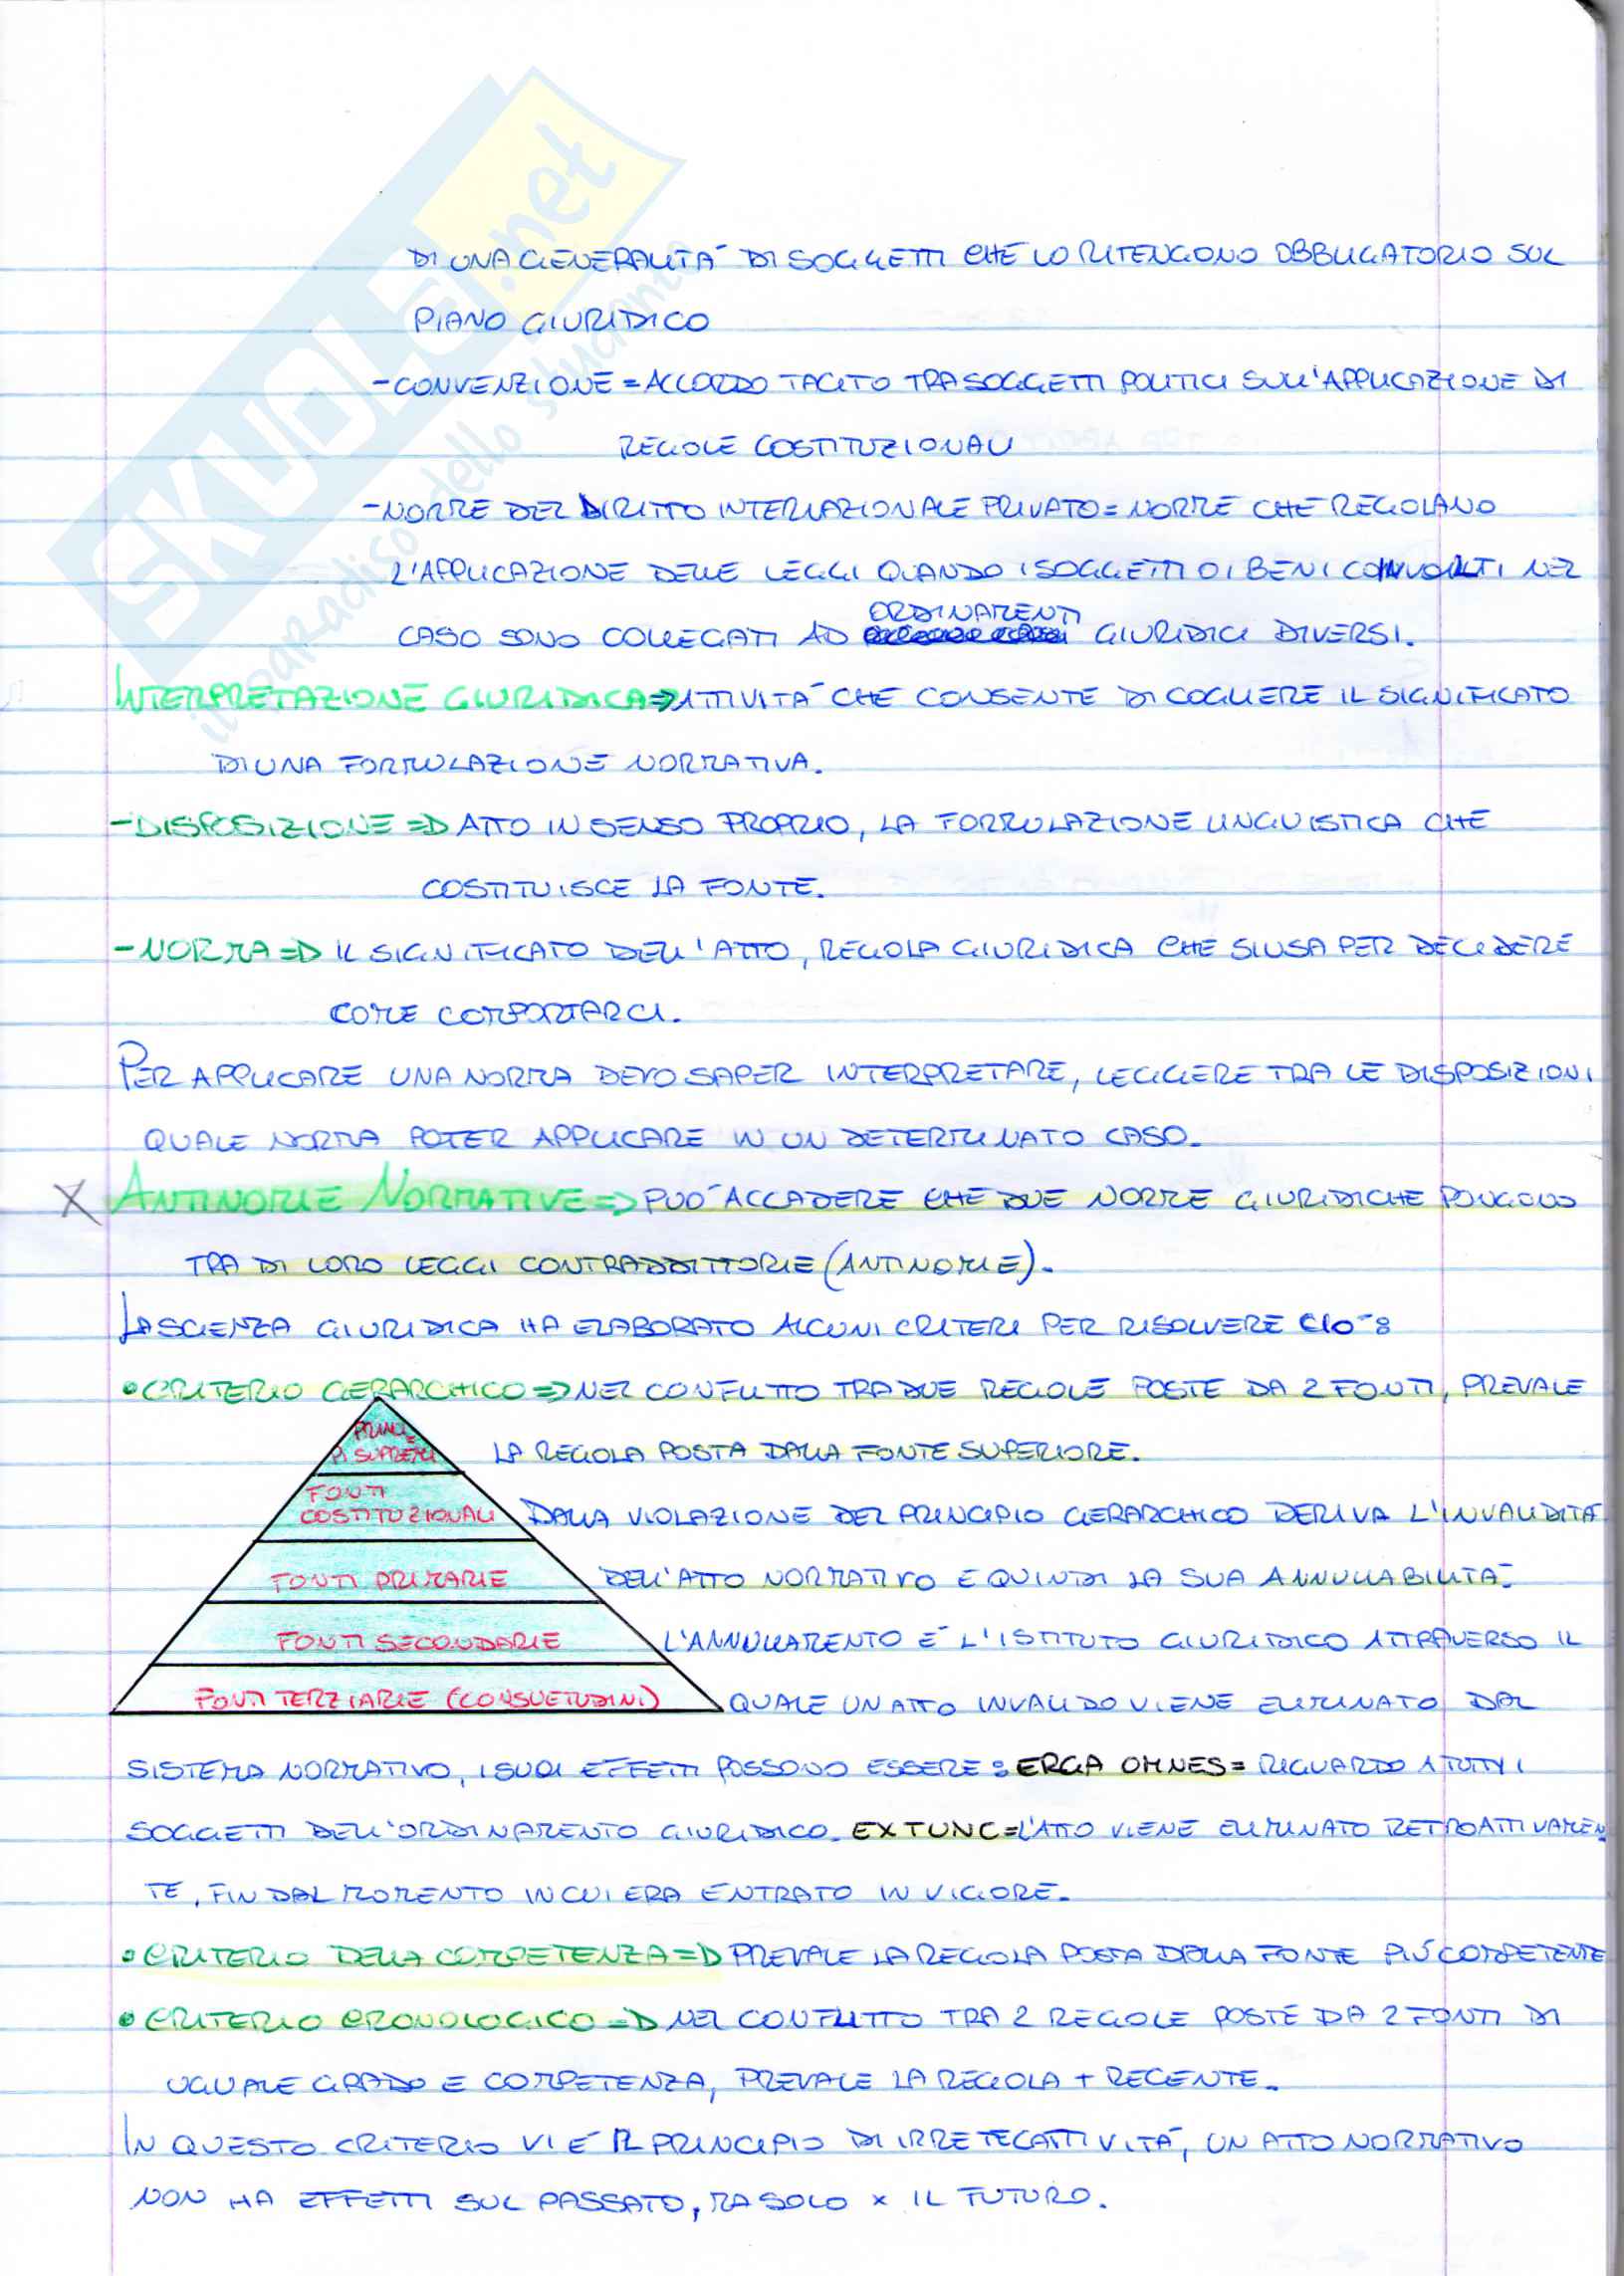 SKUOLA.net
il paradiso dello studente
DI UNA GENERALITÀ DI SOGGETTI CHE LO RITENGONO OBBLIGATORIO SUL
PIANO GIURIDICO
-CONVENZIONE = ACCORDO TACITO TRA SOGGETTI POLITICI SULL'APPLICAZIONE DI
REGOLE COSTITUZIONALI
-NORME DEL DIRITTO INTERNAZIONALE PRIVATO = NORME CHE REGOLANO
L'APPLICAZIONE DELLE LEGGI QUANDO I SOGGETTI O I BENI COINVOLTI NEL
ORDINAMENTI
CASO SONO COLLEGATI AD GIURIDICI DIVERSI.
INTERPRETAZIONE GIURIDICA => ATTIVITÀ CHE CONSENTE DI COGLIERE IL SIGNIFICATO
DI UNA FORMULAZIONE NORMATIVA.
-DISPOSIZIONE => ATTO IN SENSO PROPRIO, LA FORMULAZIONE LINGUISTICA CHE
COSTITUISCE LA FONTE.
-NORMA => IL SIGNIFICATO DELL'ATTO, REGOLA GIURIDICA CHE SI USA PER DECIDERE
COME COMPORTARCI.
PER APPLICARE UNA NORMA DEVO SAPER INTERPRETARE, LEGGERE TRA LE DISPOSIZIONI
QUALE NORMA POTER APPLICARE IN UN DETERMINATO CASO.
X ANTINOMIE NORMATIVE => PUÒ ACCADERE CHE DUE NORME GIURIDICHE PONGONO
TRA DI LORO LEGGI CONTRADDITTORIE (ANTINOMIE).
LA SCIENZA GIURIDICA HA ELABORATO ALCUNI CRITERI PER RISOLVERE CIÒ:
• CRITERIO GERARCHICO => NEL CONFLITTO TRA DUE REGOLE POSTE DA 2 FONTI, PREVALE
LA REGOLA POSTA DALLA FONTE SUPERIORE.
PRINCI=
PI SUPREMI
FONTI
COSTITUZIONALI
FONTI PRIMARIE
FONTI SECONDARIE
FONTI TERZIARIE (CONSUETUDINI)
DALLA VIOLAZIONE DEL PRINCIPIO GERARCHICO DERIVA L'INVALIDITÀ
DELL'ATTO NORMATIVO E QUINDI LA SUA ANNULLABILITÀ.
L'ANNULLAMENTO È L'ISTITUTO GIURIDICO ATTRAVERSO IL
QUALE UN ATTO INVALIDO VIENE ELIMINATO DAL
SISTEMA NORMATIVO, I SUOI EFFETTI POSSONO ESSERE: ERGA OMNES = RIGUARDO A TUTTI I
SOGGETTI DELL'ORDINAMENTO GIURIDICO. EX TUNC = L'ATTO VIENE ELIMINATO RETROATTIVAMEN
TE, FIN DAL MOMENTO IN CUI ERA ENTRATO IN VIGORE.
• CRITERIO DELLA COMPETENZA => PREVALE LA REGOLA POSTA DALLA FONTE PIÙ COMPETENTE
• CRITERIO CRONOLOGICO => NEL CONFLITTO TRA 2 REGOLE POSTE DA 2 FONTI DI
UGUALE GRADO E COMPETENZA, PREVALE LA REGOLA + RECENTE.
IN QUESTO CRITERIO VI È IL PRINCIPIO DI IRRETEOATTIVITÀ, UN ATTO NORMATIVO
NON HA EFFETTI SUL PASSATO, MA SOLO × IL FUTURO.